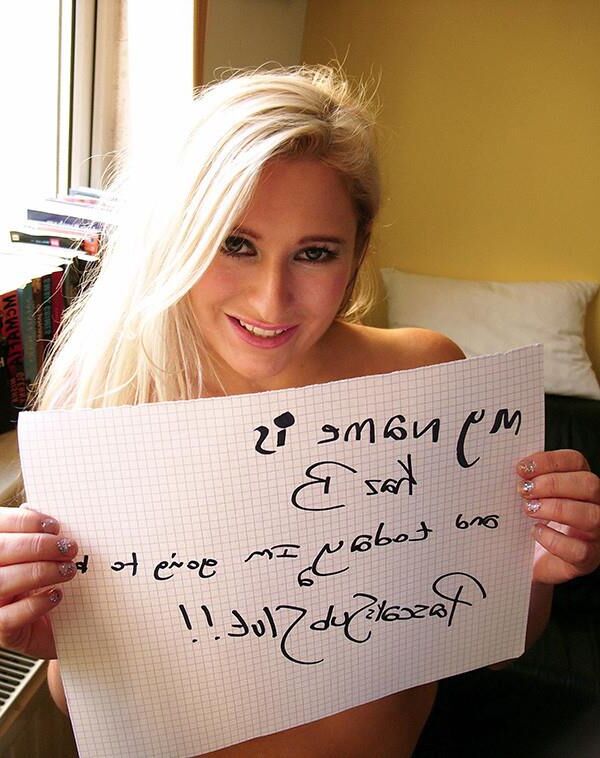 my name is
Kaz B
and today Im going to
a
PascalsSubSlut!!